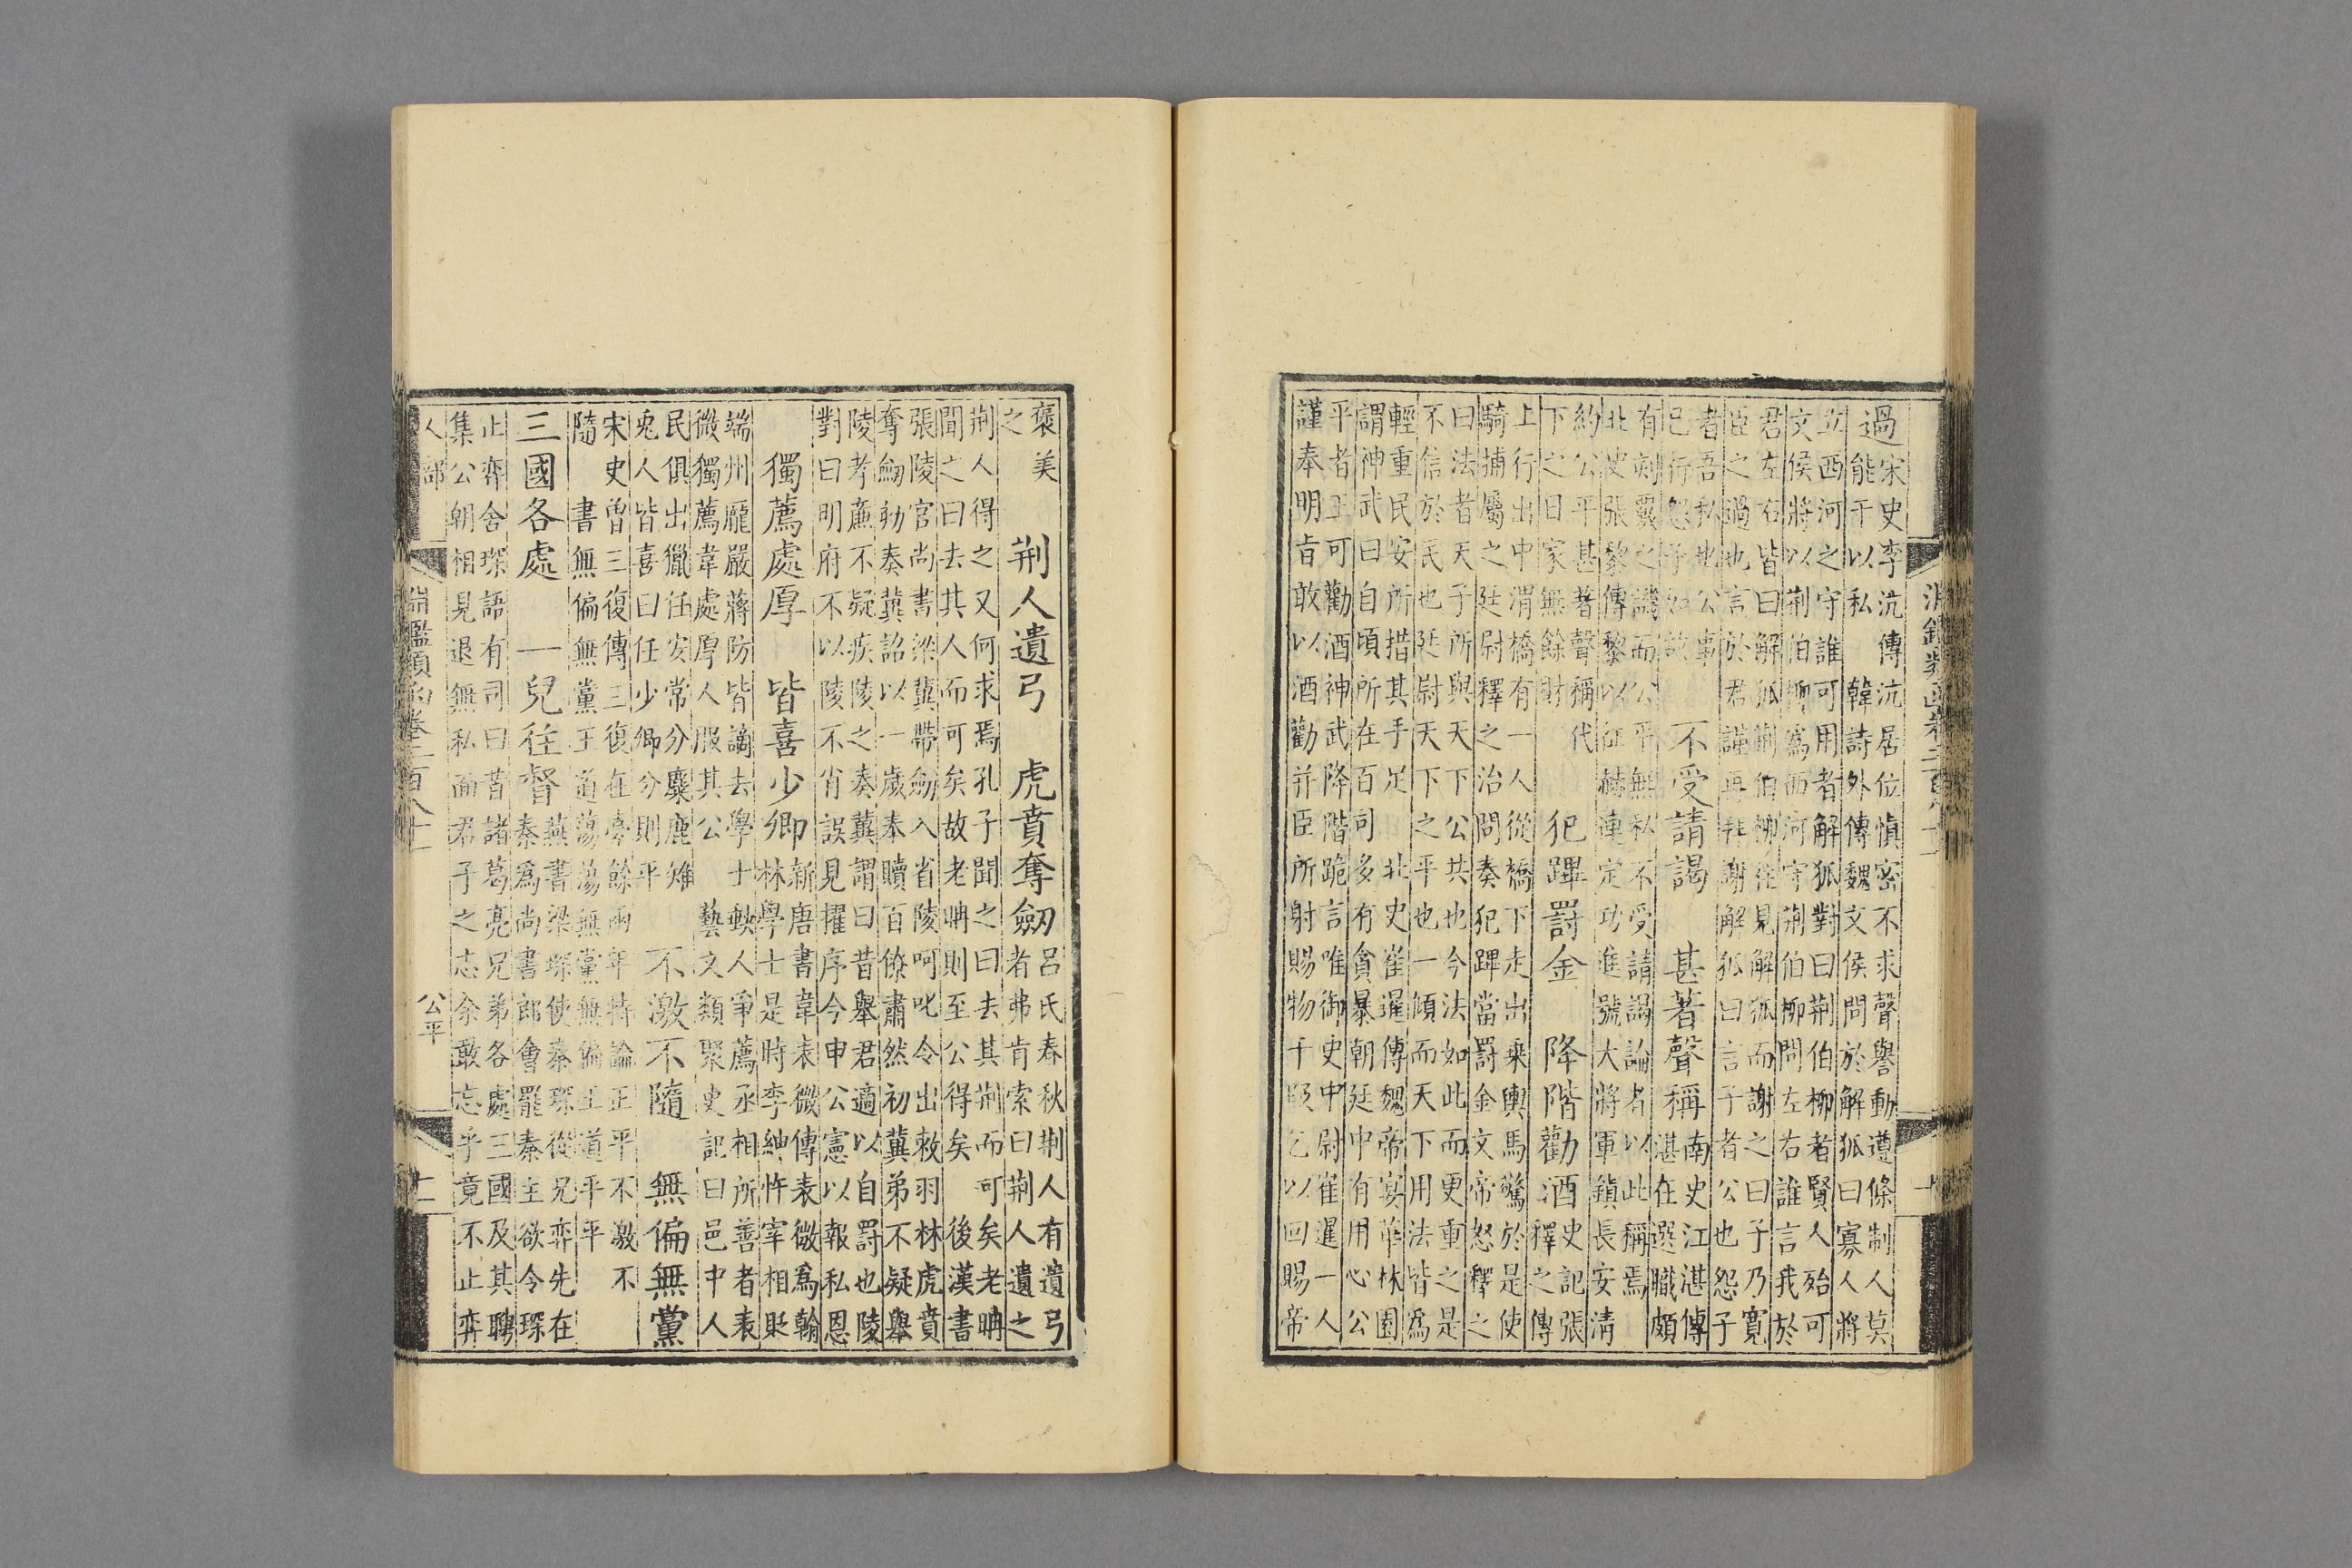 淵鑑類函卷二百八十二
過
宋史李沆傳沆居位慎密不求聲譽動遵條制人莫
能干以私 韓詩外傳魏文侯問於解狐曰寡人將
立西河之守誰可用者解狐對曰荊伯柳者賢人殆可
文侯將以荊伯柳爲西河守荊伯柳問左右誰言我於
君左右皆曰解狐荊伯柳往見解狐而謝之曰子乃寬
臣之過也言於君謹再拜謝解狐曰言子者公也怨子
者吾私也公事
已行怨子如故
不受請謁 甚著聲稱
南史江湛傳
湛在選職頗
有刻覈之譏而公平無私不受請謁論者以此稱焉
北史張黎傳黎以征赫連定功進號大將軍鎮長安清
約公平甚著聲稱代
下之日家無餘財
犯蹕罰金 降階勸酒
史記張
釋之傳
上行出中渭橋有一人從橋下走出乘輿馬驚於是使
騎捕屬之廷尉釋之治問奏犯蹕當罰金文帝怒釋之
曰法者天子所與天下公共也今法如此而更重之是
不信於民也廷尉天下之平也一傾而天下用法皆爲
輕重民安所措其手足 北史崔暹傳魏帝宴華林園
謂神武曰自頃所在百司多有貪暴朝廷中有用心公
平者王可勸酒神武降階跪言唯御史中尉崔暹一人
謹奉明旨敢以酒勸并臣所射賜物千段乞以回賜帝
褒美
之
荊人遺弓 虎賁奪劒
呂氏春秋荊人有遺弓
者弗肯索曰荊人遺之
荊人得之又何求焉孔子聞之曰去其荊而可矣老聃
聞之曰去其人而可矣故老聃則至公得矣 後漢書
張陵官尚書梁冀帶劒入省陵呵叱令出敕羽林虎賁
奪劒劾奏冀詔以一歲奉贖百僚肅然初冀弟不疑舉
陵孝廉不疑疾陵之奏冀謂曰昔舉君適以自罰也陵
對曰明府不以陵不肖誤見擢序今申公憲以報私恩
獨薦處厚 皆喜少卿
新唐書韋表微傳表微爲翰
林學士是時李紳忤宰相貶
端州龐嚴蔣防皆謫去學士缺人爭薦丞相所善者表
微獨薦韋處厚人服其公 藝文類聚史記曰邑中人
民俱出獵任安常分麋鹿雉
兎人皆喜曰任少卿分則平
不激不隨 無偏無黨
宋史曾三復傳三復在臺餘兩年持論正平不激不
隨 書無偏無黨王道蕩蕩無黨無偏王道平平
三國各處 一兒往督
燕書梁琛使秦琛從兄弈先在
秦爲尚書郎會罷秦主欲令琛
止弈舍琛語有司曰昔諸葛亮兄弟各處三國及其聘
集公朝相見退無私面君子之志余敢忘乎竟不止弈
人部
淵鑑類函卷二百八十二
公平
十二